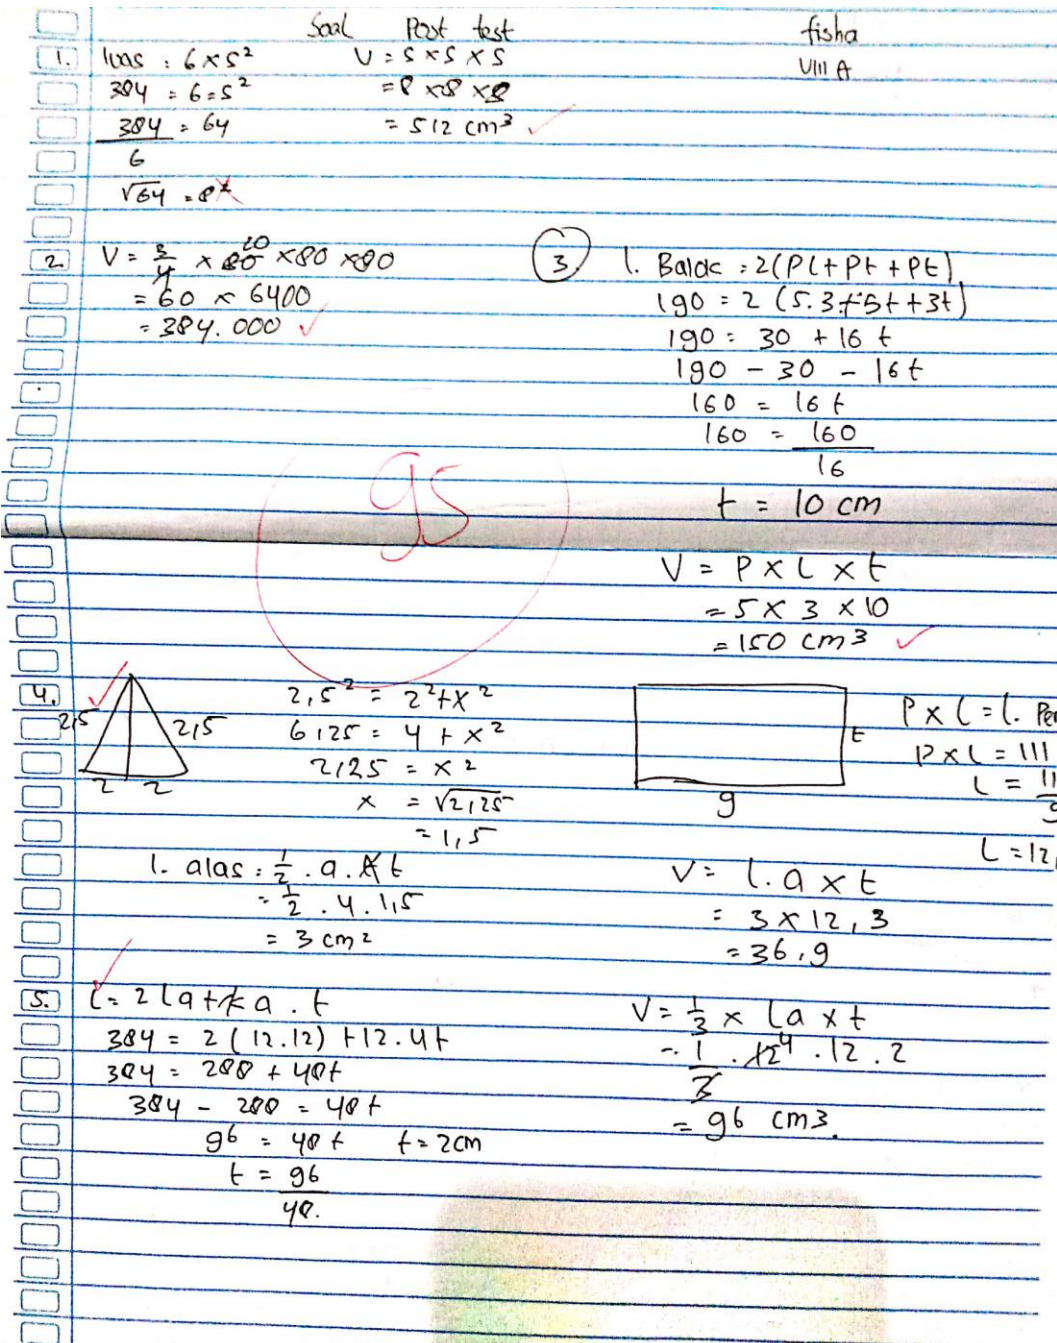 Soal Post test
fisha
VIII A
1. luas : 6 × s²
384 = 6 = s²
384 = 64
6
√64 = 8²
V = s × s × s
= 8 × 8 × 8
= 512 cm³
2. V = 3/4 × 80 20 × 80 × 80
= 60 × 6400
= 384.000
3 l. Balok : 2(Pl + Pt + Pt)
190 = 2 (5.3 + 5t + 3t)
190 = 30 + 16 t
190 - 30 - 16t
160 = 16 t
160 = 160
16
t = 10 cm
V = P × L × t
= 5 × 3 × 10
= 150 cm³
95
4.
2,5 2,5
2 2
2,5² = 2² + x²
6,25 = 4 + x²
2,25 = x²
x = √2,25
= 1,5
l. alas : 1/2 . a . t
= 1/2 . 4 . 1,5
= 3 cm²
t
9
P × L = l.
P × L = 111
L =
L = 12,
V = l.a × t
= 3 × 12,3
= 36,9
5. L = 2 la + k a . t
384 = 2 (12.12) + 12.4t
384 = 288 + 48t
384 - 288 = 48t
96 = 48 t t = 2cm
t = 96
48.
V = 1/3 × la × t
= 1/3 . 12 4 . 12 . 2
= 96 cm3.